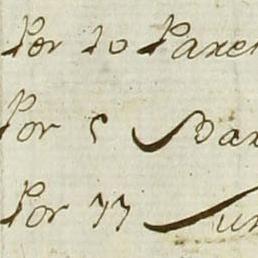 Por 10 Pares
Por 5 Bar
Por 77 Jun